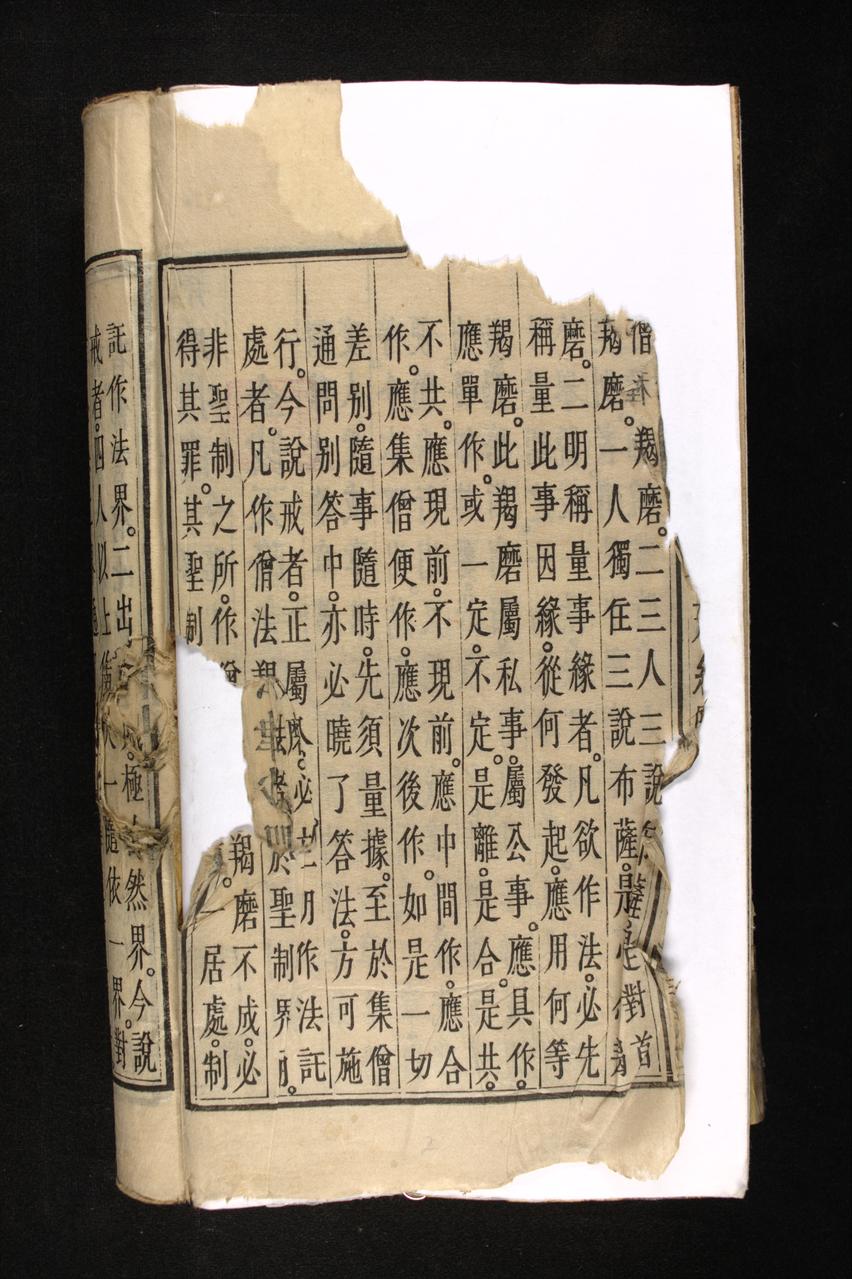 羯磨。二三人三說是對首
羯磨。一人獨住三說布薩。是
磨。二明稱量事緣者。凡欲作法。必先
稱量此事因緣。從何發起。應用何等
羯磨。此羯磨屬私事。屬公事。應具作。
應單作。或一定。不定。是離。是合。是共。
不共。應現前。不現前。應中間作。應合
作。應集僧便作。應次後作。如是一切
差別。隨事隨時。先須量據。至於集僧
通問別答中。亦必曉了答法。方可施
行。今說戒者。正屬必月作法託
處者。凡作僧法於聖制界
非聖制之所。作僧羯磨不成。必
得其罪。其聖制一居處。制
託作法界。二出極然界。今說
戒者。四人以上一隨依一界。對